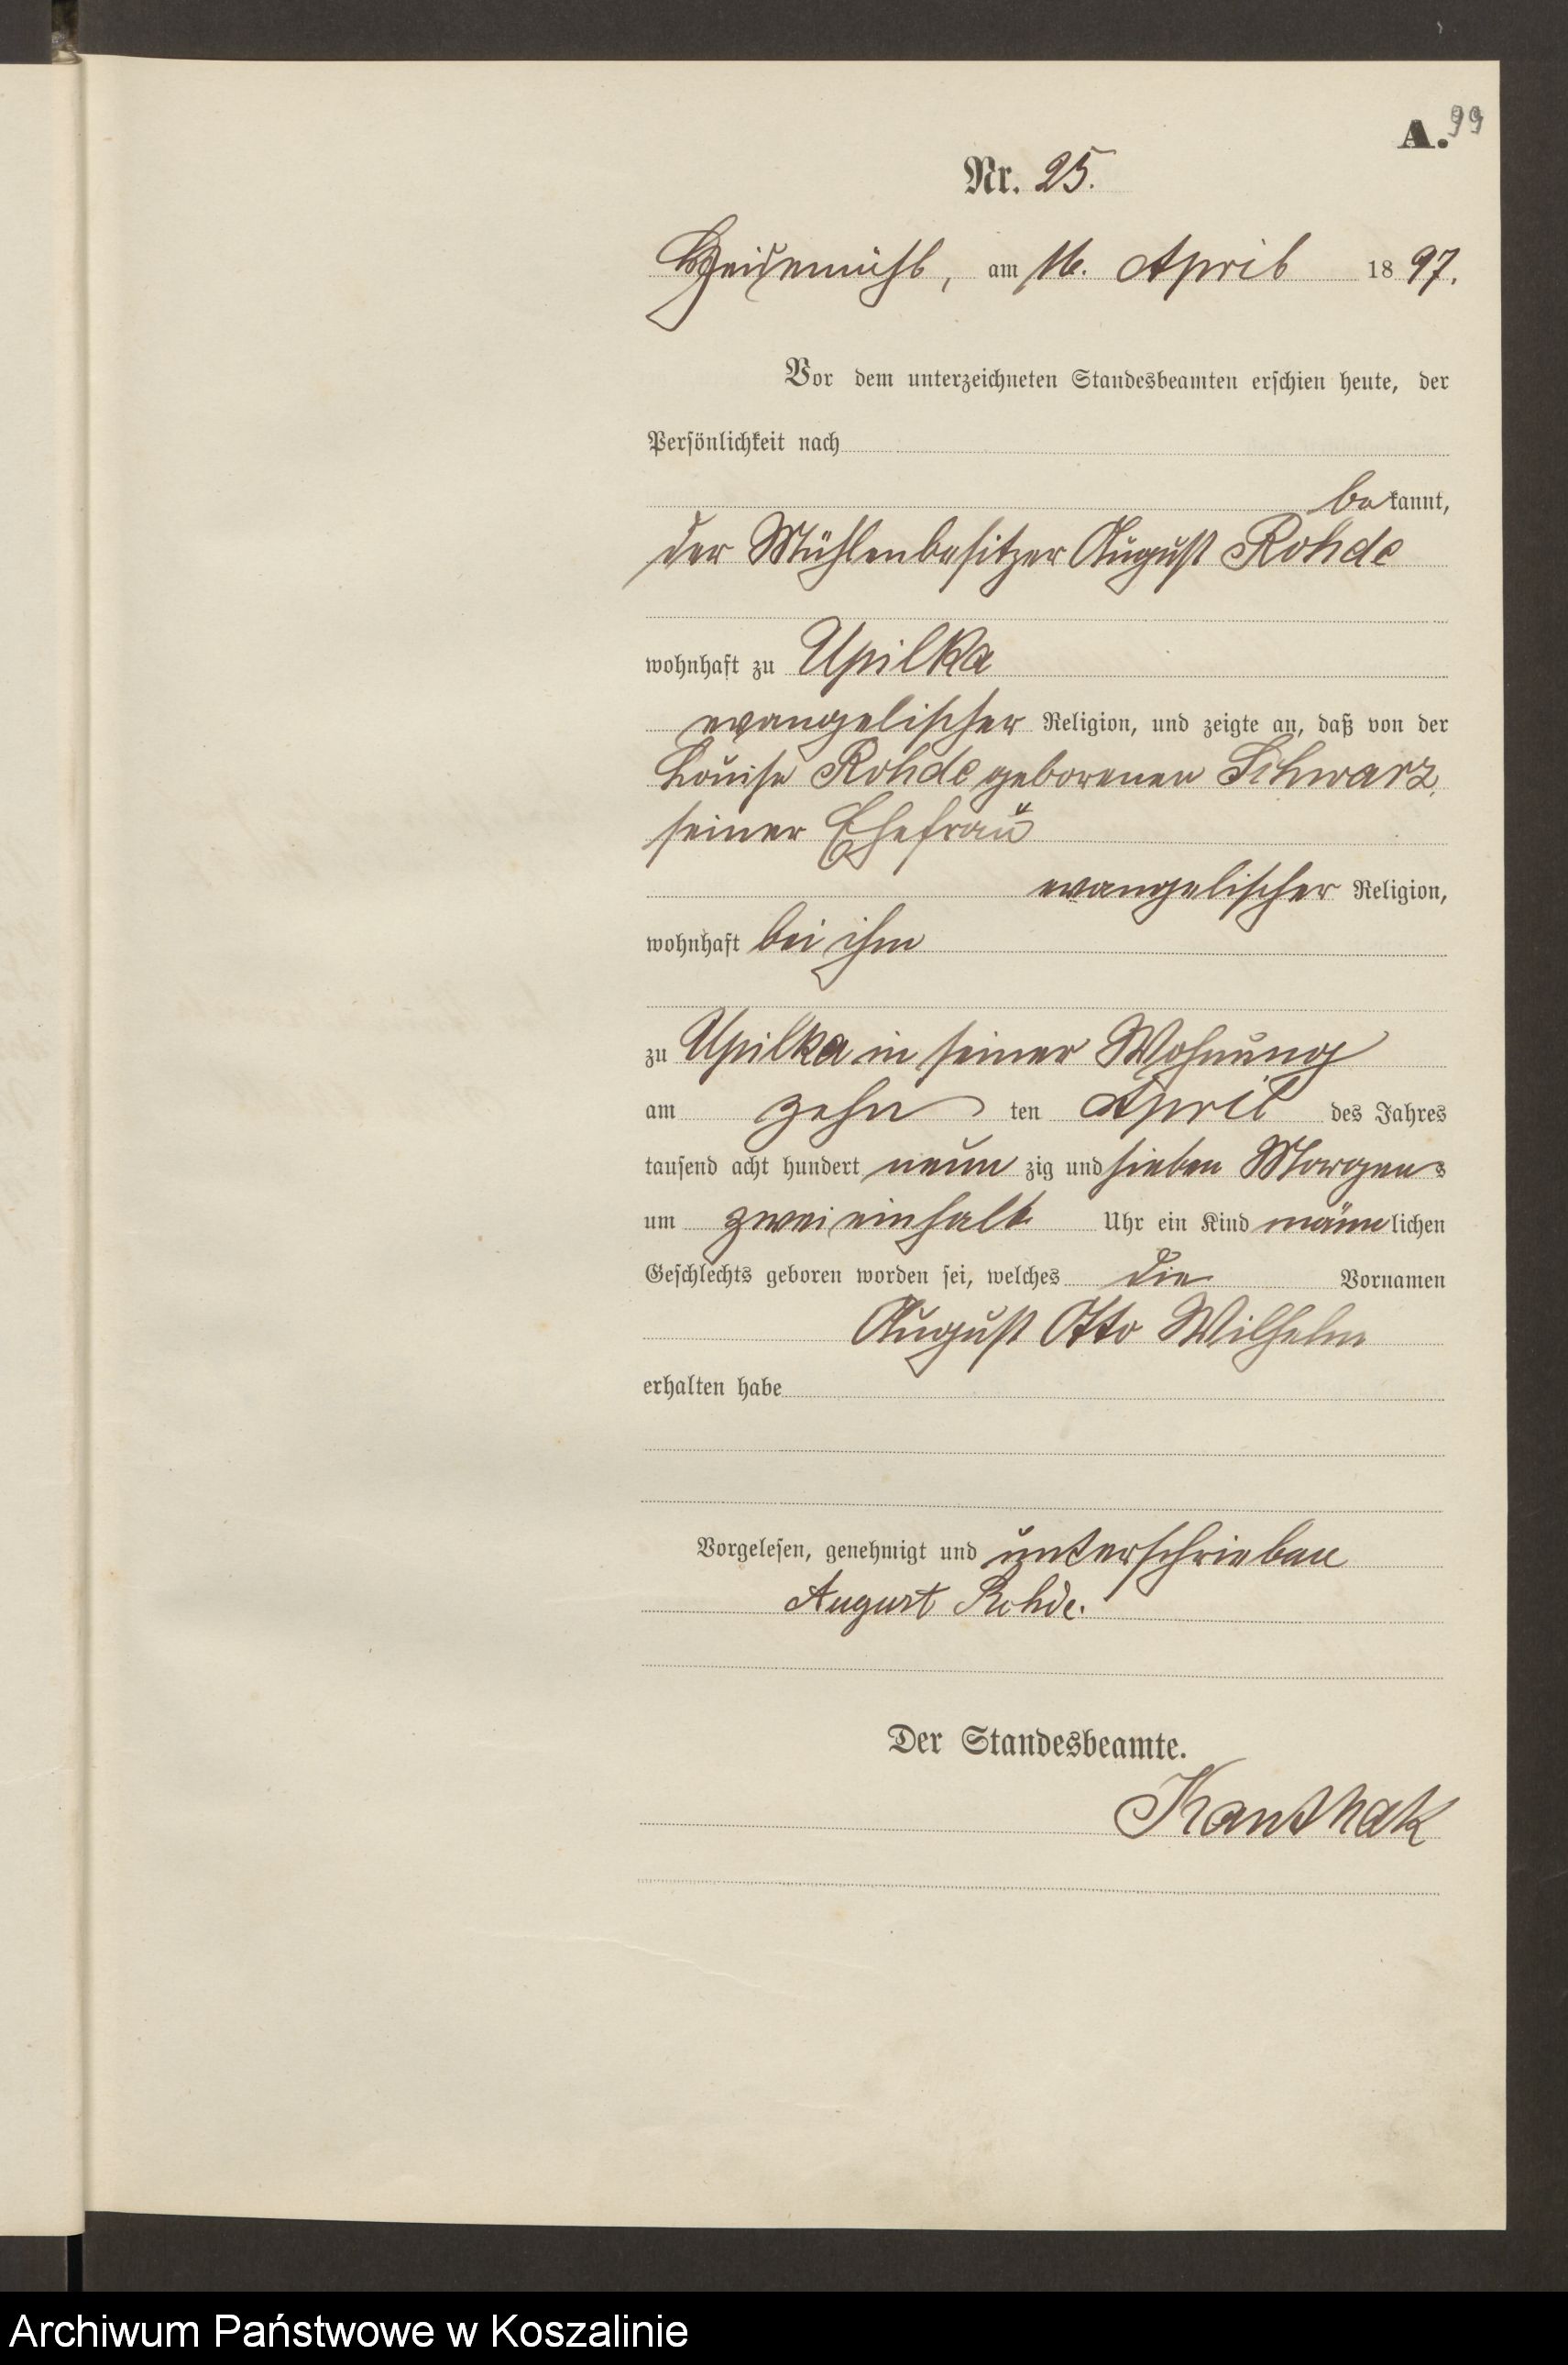 A. 99
Nr. 25.
Heidemühl, am 16. April 1897.
Vor dem unterzeichneten Standesbeamten erschien heute, der
Persönlichkeit nach
bekannt,
der Mühlenbesitzer August Rohde
wohnhaft zu Upilka
evangelischer Religion, und zeigte an, daß von der
Louise Rohde geborenen Schwarz,
seiner Ehefrau
evangelischer Religion,
wohnhaft bei ihm
zu Upilka in seiner Wohnung
am zehn ten April des Jahres
tausend acht hundert neun zig und sieben Morgens
um zwei einhalb Uhr ein Kind männlichen
Geschlechts geboren worden sei, welches die Vornamen
August Otto Wilhelm
erhalten habe
Vorgelesen, genehmigt und unterschrieben
August Rohde.
Der Standesbeamte.
Kanthak
Archiwum Państwowe w Koszalinie